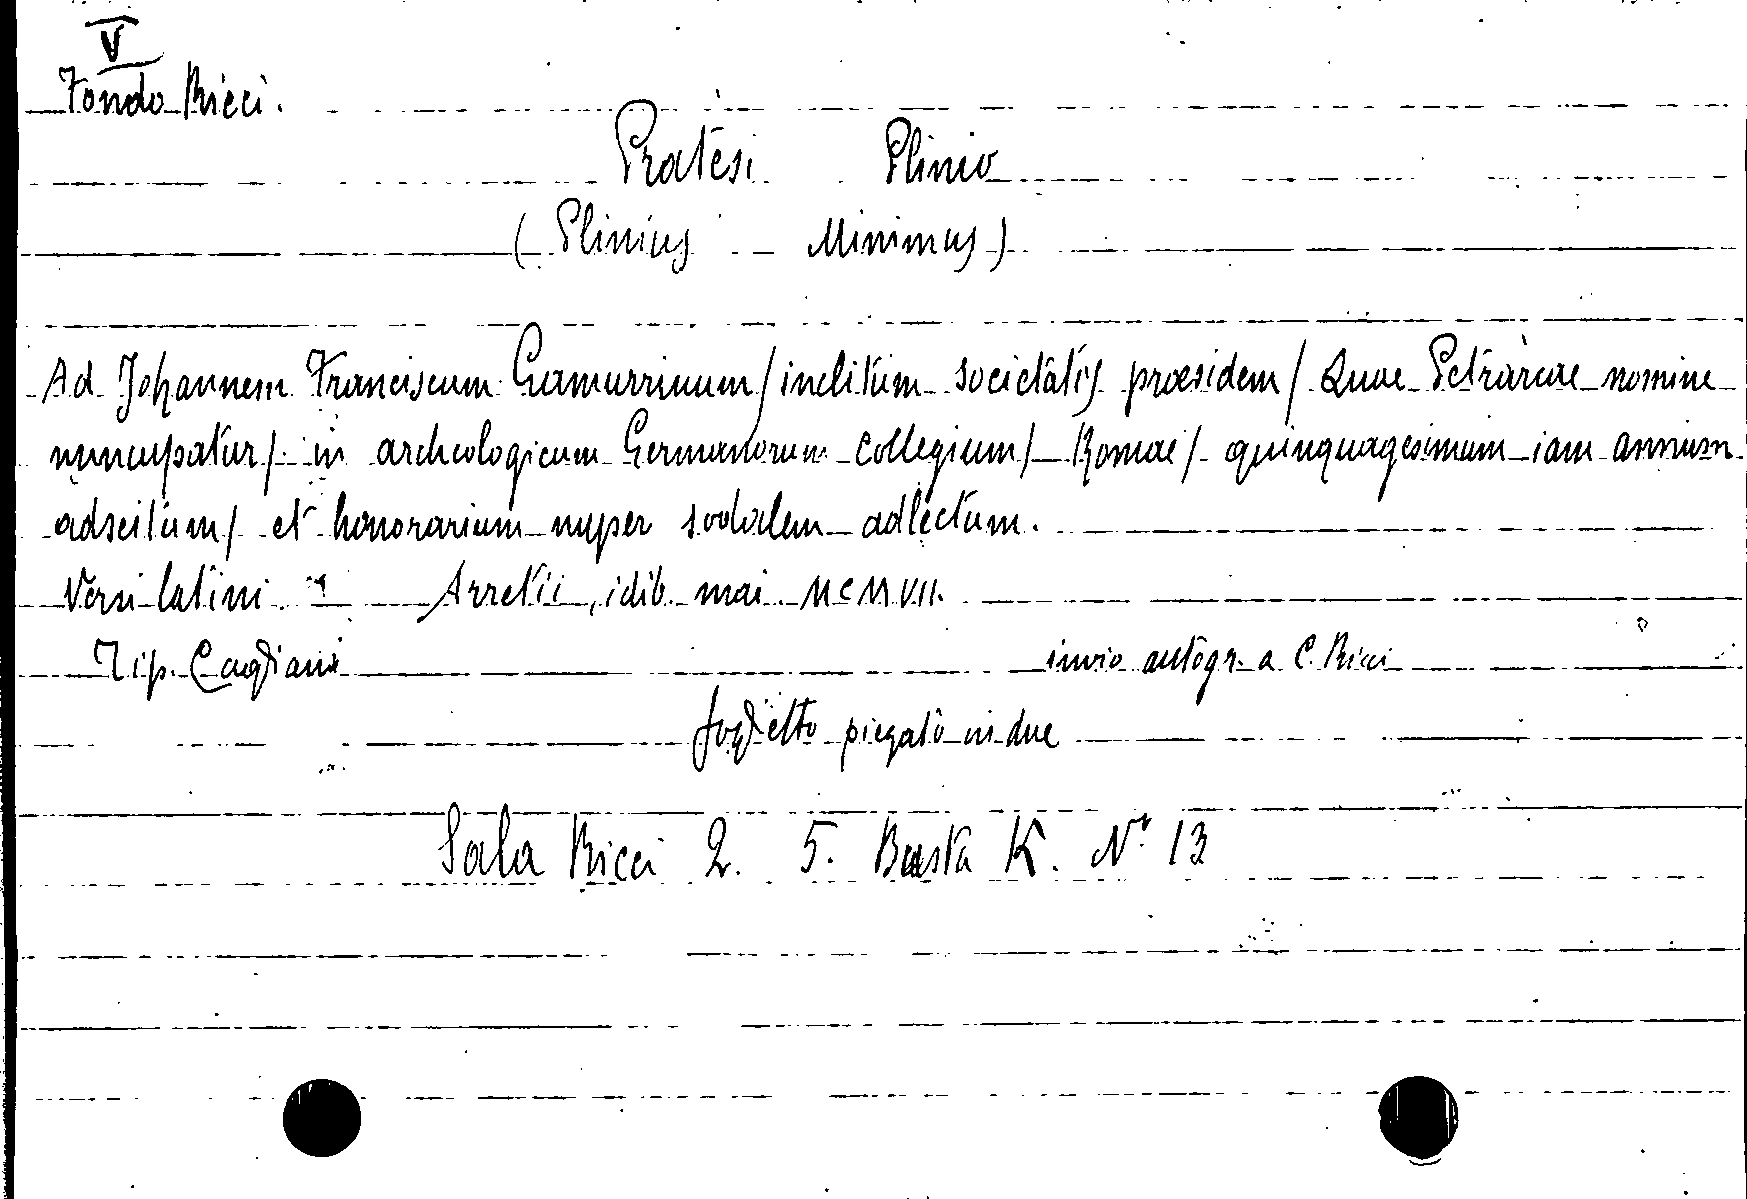 V
Fondo Ricci.
Pratesi Plinio
(Plinius Minimus)
Ad Johannem Franciscum Gamurrinum / inclitum societatis praesidem / Quae Petrarcae nomine
nuncupatur / in archeologicum Germanorum collegium / Romae / quinquagesimum iam annum
adscitum / et honorarium nuper sodalem adlectum.
Versi latini Arretii, idib. mai. MCMVII.
Tip. Cagliani invio autogr. a C. Ricci
foglietto piegato in due
Sala Ricci 2. 5. Busta K. N° 13